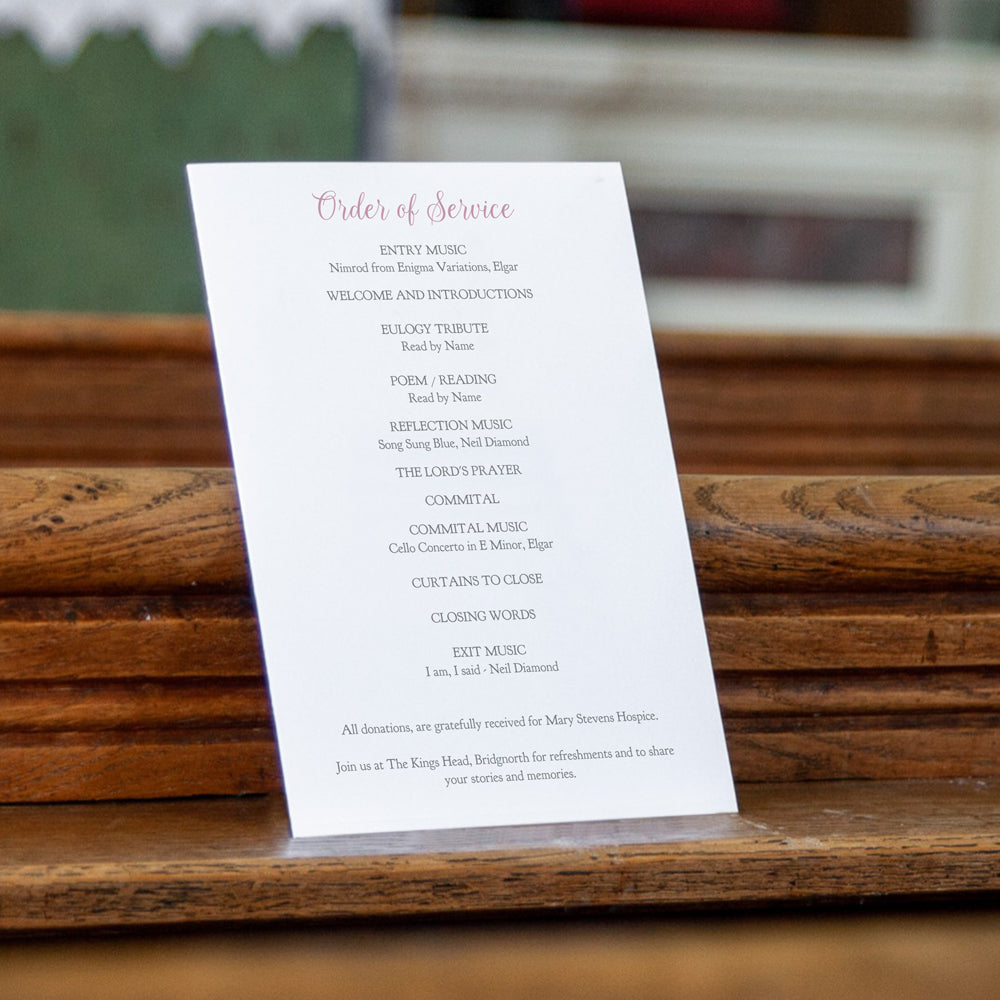 Order of Service
ENTRY MUSIC
Nimrod from Enigma Variations, Elgar
WELCOME AND INTRODUCTIONS
EULOGY TRIBUTE
Read by Name
POEM / READING
Read by Name
REFLECTION MUSIC
Song Sung Blue, Neil Diamond
THE LORD'S PRAYER
COMMITAL
COMMITAL MUSIC
Cello Concerto in E Minor, Elgar
CURTAINS TO CLOSE
CLOSING WORDS
EXIT MUSIC
I am, I said - Neil Diamond
All donations, are gratefully received for Mary Stevens Hospice.
Join us at The Kings Head, Bridgnorth for refreshments and to share
your stories and memories.